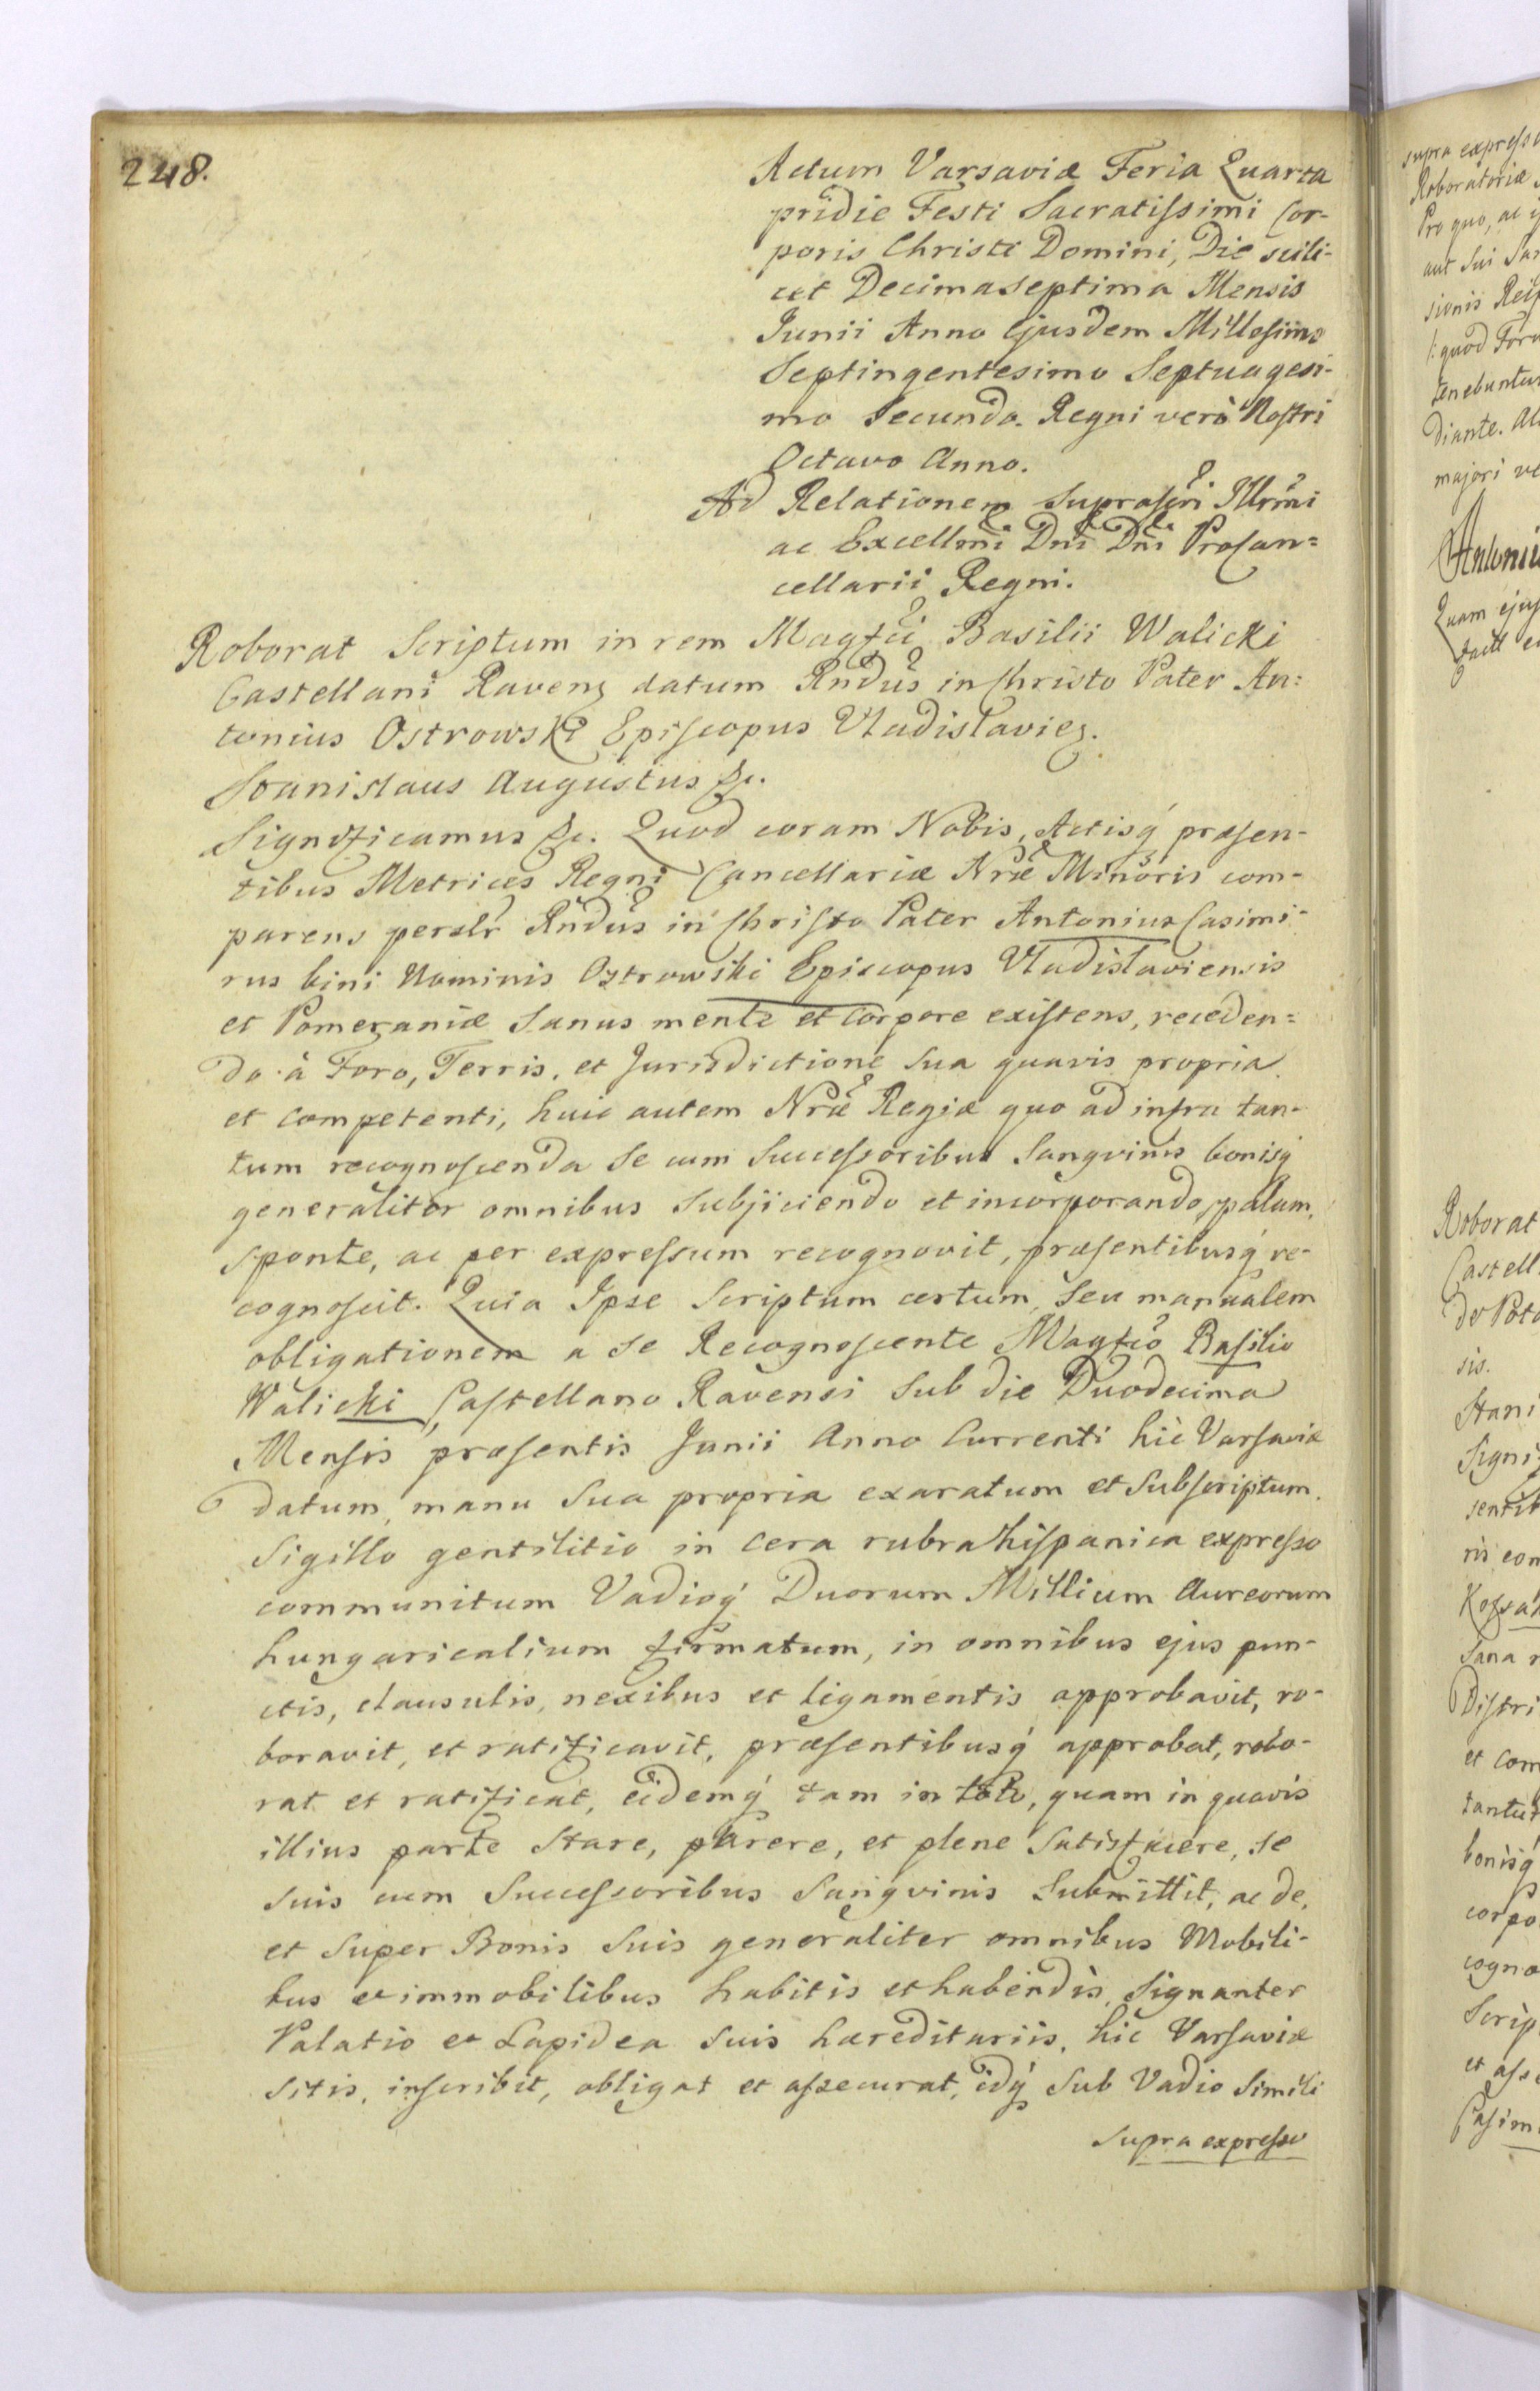 248.
Actum Varsaviæ Feria Quarta
pridie Festi Sacratissimi Cor-
poris Christi Domini, Die scili-
cet Decima Septima Mensis
Junii Anno Ejusdem Millesimo
Septingentesimo Septuagesi-
mo Secundo. Regni verò Nostri
Octavo Anno.
Ad Relationem suprascri Illrmi
ac Excellmi Dni Dni Procan=
cellarii Regni.
Roborat Scriptum in rem Magfci Basilii Walicki
Castellani Ravens datum Rndus in Christo Pater An=
tonius Ostrowski Episcopus Vladislavies.
Stanislaus Augustus &c.
Significamus &c. Quod coram Nobis, Actisq́ præsen-
tibus Metrices Regni Cancellariæ Nræ Minoris com-
parens persלr Rndus in Christo Pater Antonius Casimi-
rus bini Nominis Ostrowski Episcopus Vladislaviensis
et Pomeraniæ Sanus mente et Corpore existens, receden=
do à Foro, Terris, et Jurisdictione Sua quavis propria
et competenti, huic autem Nræ Regiæ quo ad infra tan-
tum recognoscenda Se cum Successoribus Sangvinis bonisq́
generaliter omnibus Subjiciendo et incorporando, palam,
sponte, ac per expressum recognovit, præsentibusq́ re-
cognoscit. Quia Ipse Scriptum certum, Seu manualem
obligationem a Se Recognoscente Magfco Basilio
Walicki Castellano Ravensi Sub die Duodecima
Mensis præsentis Junii Anno Currenti hic Varsaviæ
datum, manu Sua propria exaratum et Subscriptum.
Sigillo gentilitio in Cera rubra hispanica expresso
communitum Vadioq́ Duorum Millium Aureorum
hungaricalium firmatum, in omnibus ejus pun-
ctis, clausulis, nexibus et ligamentis approbavit, ro-
boravit, et ratificavit, præsentibusq́ approbat, robo-
rat et ratificat, eidemq́ tam in toto, quam in quavis
illius parte Stare, parere, et plene Satisfacere, se
suis cum Successoribus Sangvinis Submittit, ac de,
et Super Bonis Suis generaliter omnibus Mobili-
bus et immobilibus habitis et habendis, Signanter
Palatio et Lapidea Suis hæreditariis, hic Varsaviæ
sitis, inscribit, obligat et assecurat, idq́ Sub Vadio Simili
supra expresso
supra expresso
Roboratoriæ
Pro quo, ac
aut Sui
sionis
/:quod
tenebuntur
diante.
majori
Antonius
Quam
Roborat
Castell
de
sis.
Stani
Signi
sentib
ris com
Sana
Distri
et com
tantu
bonisq́
corpo
cogno
Scrip
et asse
Casim